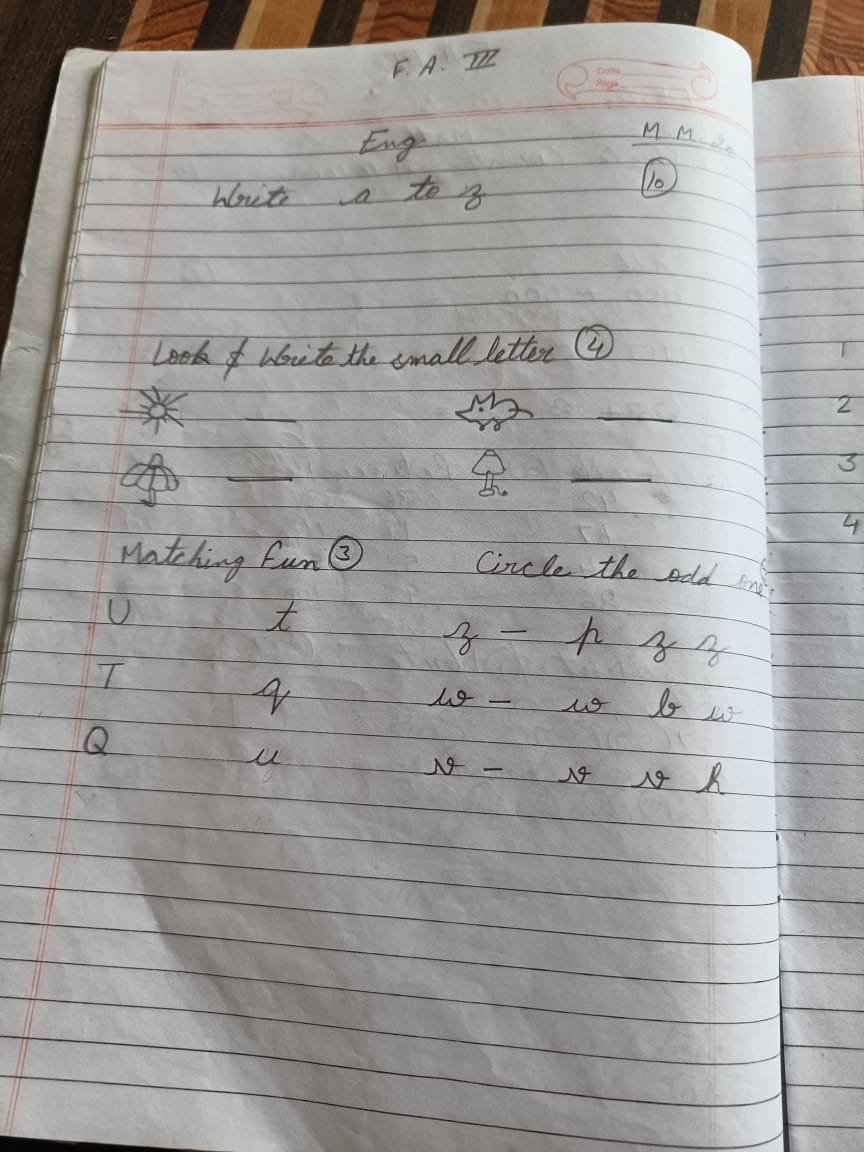 F. A. III
Date
Page
Eng M. M. 20
Write a to z 10
Look & Write the small letter 4
Matching Fun 3 Circle the odd one
U t z - p z z
T q w - w b w
Q u v - v v h
1
2
3
4